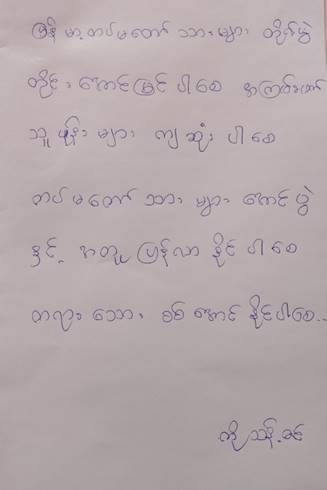 မြန်မာ့တပ်မတော်သားများ တိုက်ပွဲ
တိုင်းအောင်မြင်ပါစေ အကြမ်းဖက်
သူပုန်များ ကျဆုံးပါစေ
တပ်မတော်သားများ အောင်ပွဲ
နှင့်အတူ ပြန်လာနိုင်ပါစေ
တရားသော စစ်အောင်နိုင်ပါစေ..